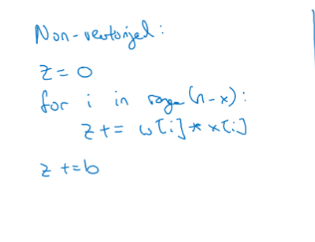 Non-vectorized:
z = 0
for i in range(n-x):
z += w[i] * x[i]
z += b